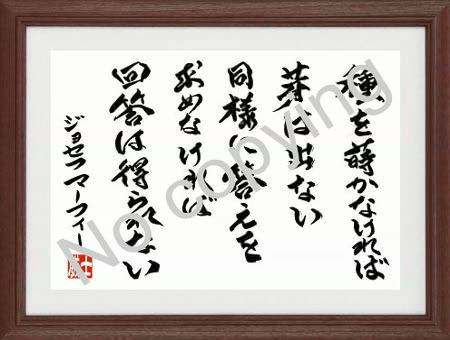 種を蒔かなければ
芽は出ない
同様に答えを
求めなければ
回答は得られない
ジョセフマーフィー
No copying